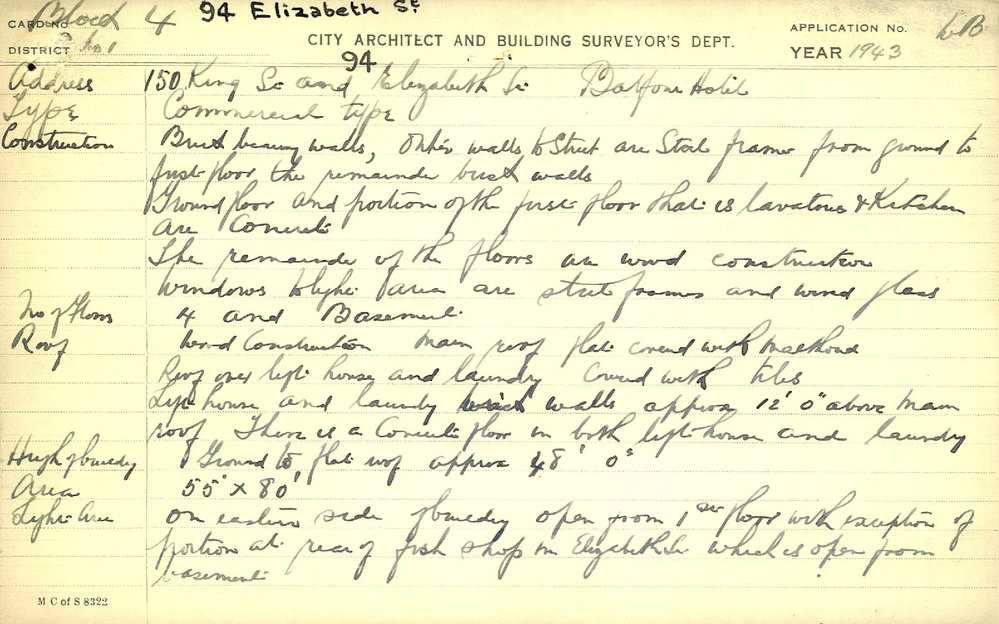 CARD No. Block 4 94 Elizabeth St
APPLICATION No. WB
CITY ARCHITECT AND BUILDING SURVEYOR'S DEPT.
DISTRICT No 1
YEAR 1943
94
Address 150 King St and Elizabeth St Balfour Hotel
Type Commercial type
Construction Brick bearing walls, Other walls to Street are Steel frame from ground to
first floor the remainder brick walls
Ground floor and portion of the first floor that is lavatories & Kitchen
are Concrete
The remainder of the floors are wood construction
Windows to light area are steel frames and wired glass
No of Floors 4 and Basement
Roof Wood Construction Main roof flat covered with Malthoid
Roof over lift house and laundry Covered with tiles
Lift house and laundry brick walls approx 12' 0" above Main
roof There is a Concrete floor in both lift house and laundry
Height of building Ground to flat roof approx 48' 0"
Area 55' x 80'
Light Area On eastern side of building open from 1st floor with exception of
portion at rear of fish shop in Elizabeth St which is open from
basement
M C of S 8322